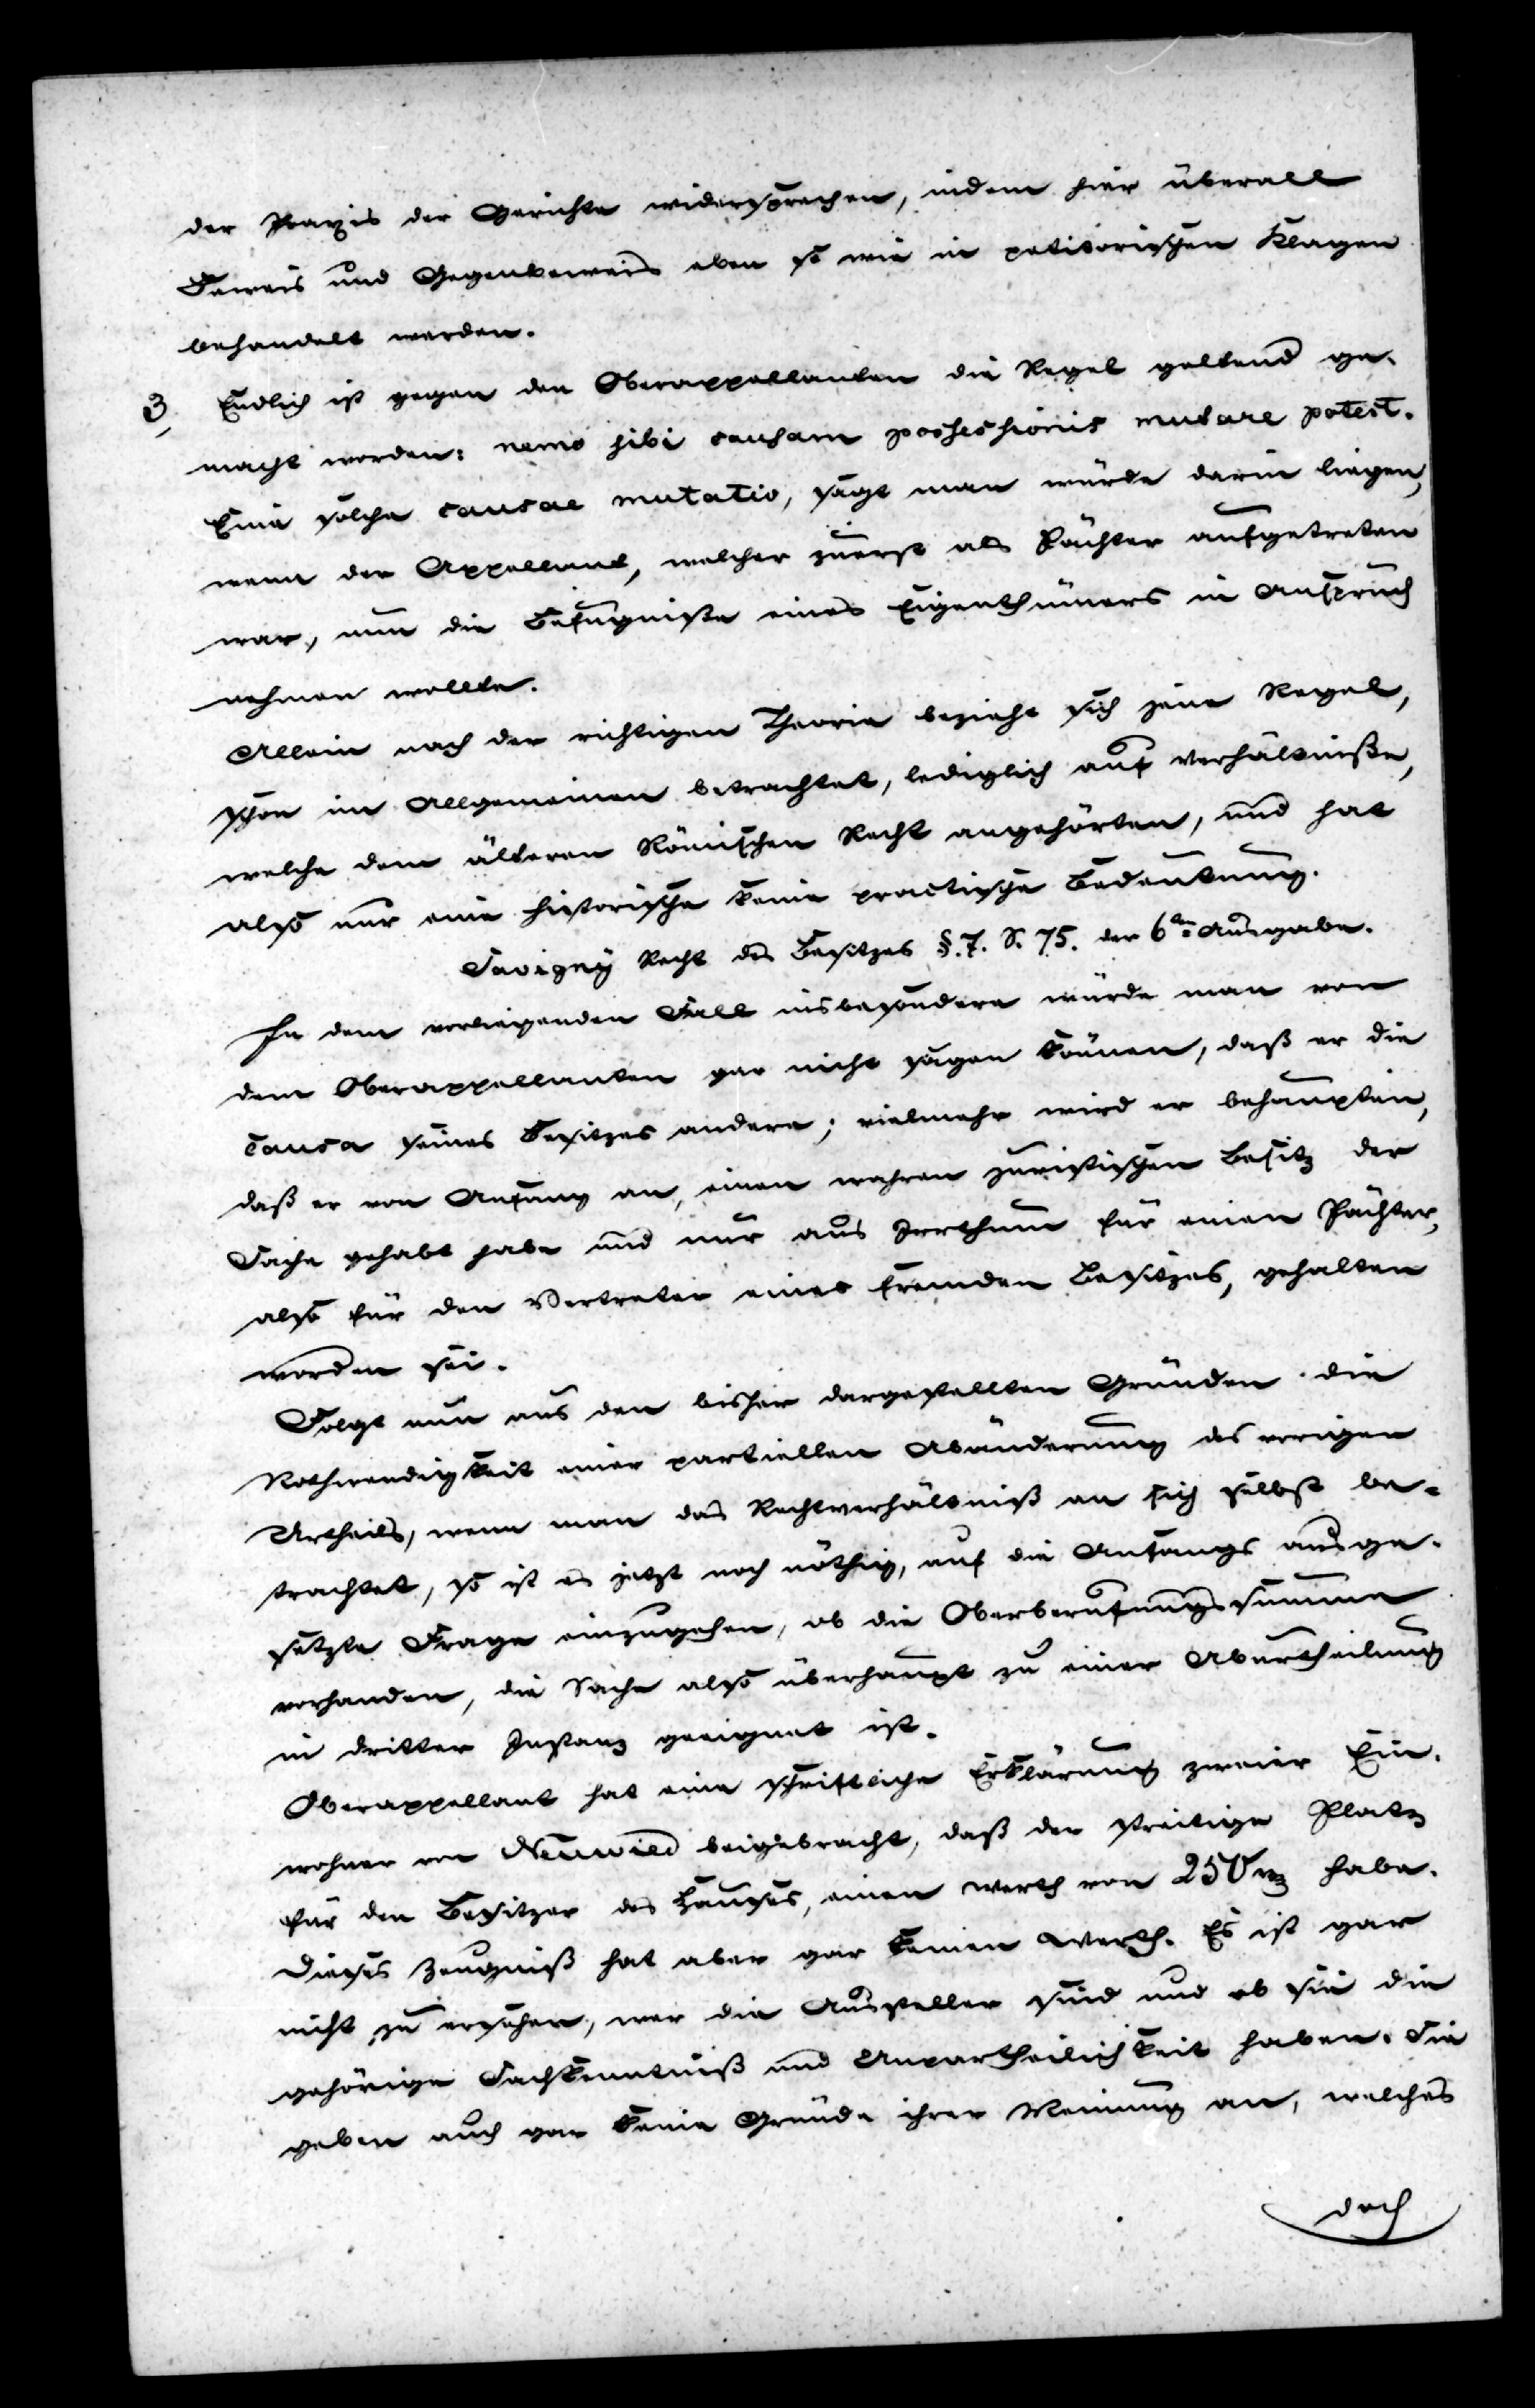 der Praxis der Gerichte widersprechen, indem hier überall
Beweis und Gegenbeweis eben so wie in petitorischen Klagen
behandelt werden.
3, Endlich ist gegen den Oberappellanten die Regel geltend ge-
macht worden: nemo sibi causam possessionis mutare potest.
Eine solche causae mutatio, sagt man würde darin liegen,
wenn der Appellant, welcher zuerst als Pächter aufgetreten
war, nun die Befugnisse eines Eigenthümers in Anspruch
nehmen wollte.
Allein nach der richtigen Theorie bezieht sich jene Regel,
schon im Allgemeinen betrachtet, lediglich auf Verhältniße,
welche dem älteren Römischen Recht angehörten, und hat
also nur eine historische keine practische Bedeutung.
Savigny Recht des Besitzes §. 7. S. 75. der 6ten Ausgabe.
In dem vorliegenden Fall insbesondere würde man von
dem Oberappellanten gar nicht sagen können, daß er die
causa seines Besitzes andere; vielmehr wird er behaupten,
daß er von Anfang an, einen wahren juristischen Besitz der
Sache gehabt habe und nur aus Irrthum für einen Pächter,
also für den Vertreter eines fremden Besitzes, gehalten
worden sei.
Folgt nun aus den bisher dargestellten Gründen die
Nothwendigkeit einer partiellen Abänderung des vorigen
Urtheils, wenn man das Rechtverhältniß an sich selbst be-
trachtet, so ist es jetzt noch nöthig, auf die Anfangs ausge-
setzte Frage einzugehen, ob die Oberberufungssumme
vorhanden, die Sache also überhaupt zu einer Aburtheilung
in dritter Instanz geeignet ist.
Oberappellant hat eine schriftliche Erklärung zweier Ein-
wohner von Neuwied beigebracht, daß der streitige Platz
für den Besitzer des Hauses, einen Werth von 250 habe.
Dieses Zeugniß hat aber gar keinen Werth. Es ist gar
nicht zu ersehen, wer die Aussteller sind und ob sie die
gehörige Sachkenntniß und Unpartheilichkeit haben. Sie
geben auch gar keine Gründe ihrer Meinung an, welches
doch